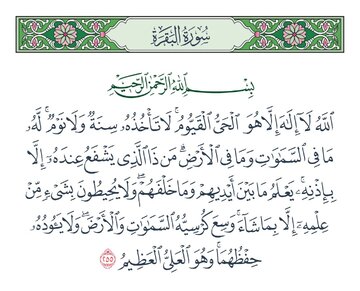 سُورَةُ البَقَرَةِ
بِسْمِ ٱللَّهِ ٱلرَّحْمَٰنِ ٱلرَّحِيمِ
ٱللَّهُ لَآ إِلَٰهَ إِلَّا هُوَ ٱلْحَىُّ ٱلْقَيُّومُ ۚ لَا تَأْخُذُهُۥ سِنَةٌ وَلَا نَوْمٌ ۚ لَّهُۥ
مَا فِى ٱلسَّمَٰوَٰتِ وَمَا فِى ٱلْأَرْضِ ۗ مَن ذَا ٱلَّذِى يَشْفَعُ عِندَهُۥٓ إِلَّا
بِإِذْنِهِۦ ۚ يَعْلَمُ مَا بَيْنَ أَيْدِيهِمْ وَمَا خَلْفَهُمْ ۖ وَلَا يُحِيطُونَ بِشَىْءٍ مِّنْ
عِلْمِهِۦٓ إِلَّا بِمَا شَآءَ ۚ وَسِعَ كُرْسِيُّهُ ٱلسَّمَٰوَٰتِ وَٱلْأَرْضَ ۖ وَلَا يَـُٔودُهُۥ
حِفْظُهُمَا ۚ وَهُوَ ٱلْعَلِىُّ ٱلْعَظِيمُ ٢٥٥